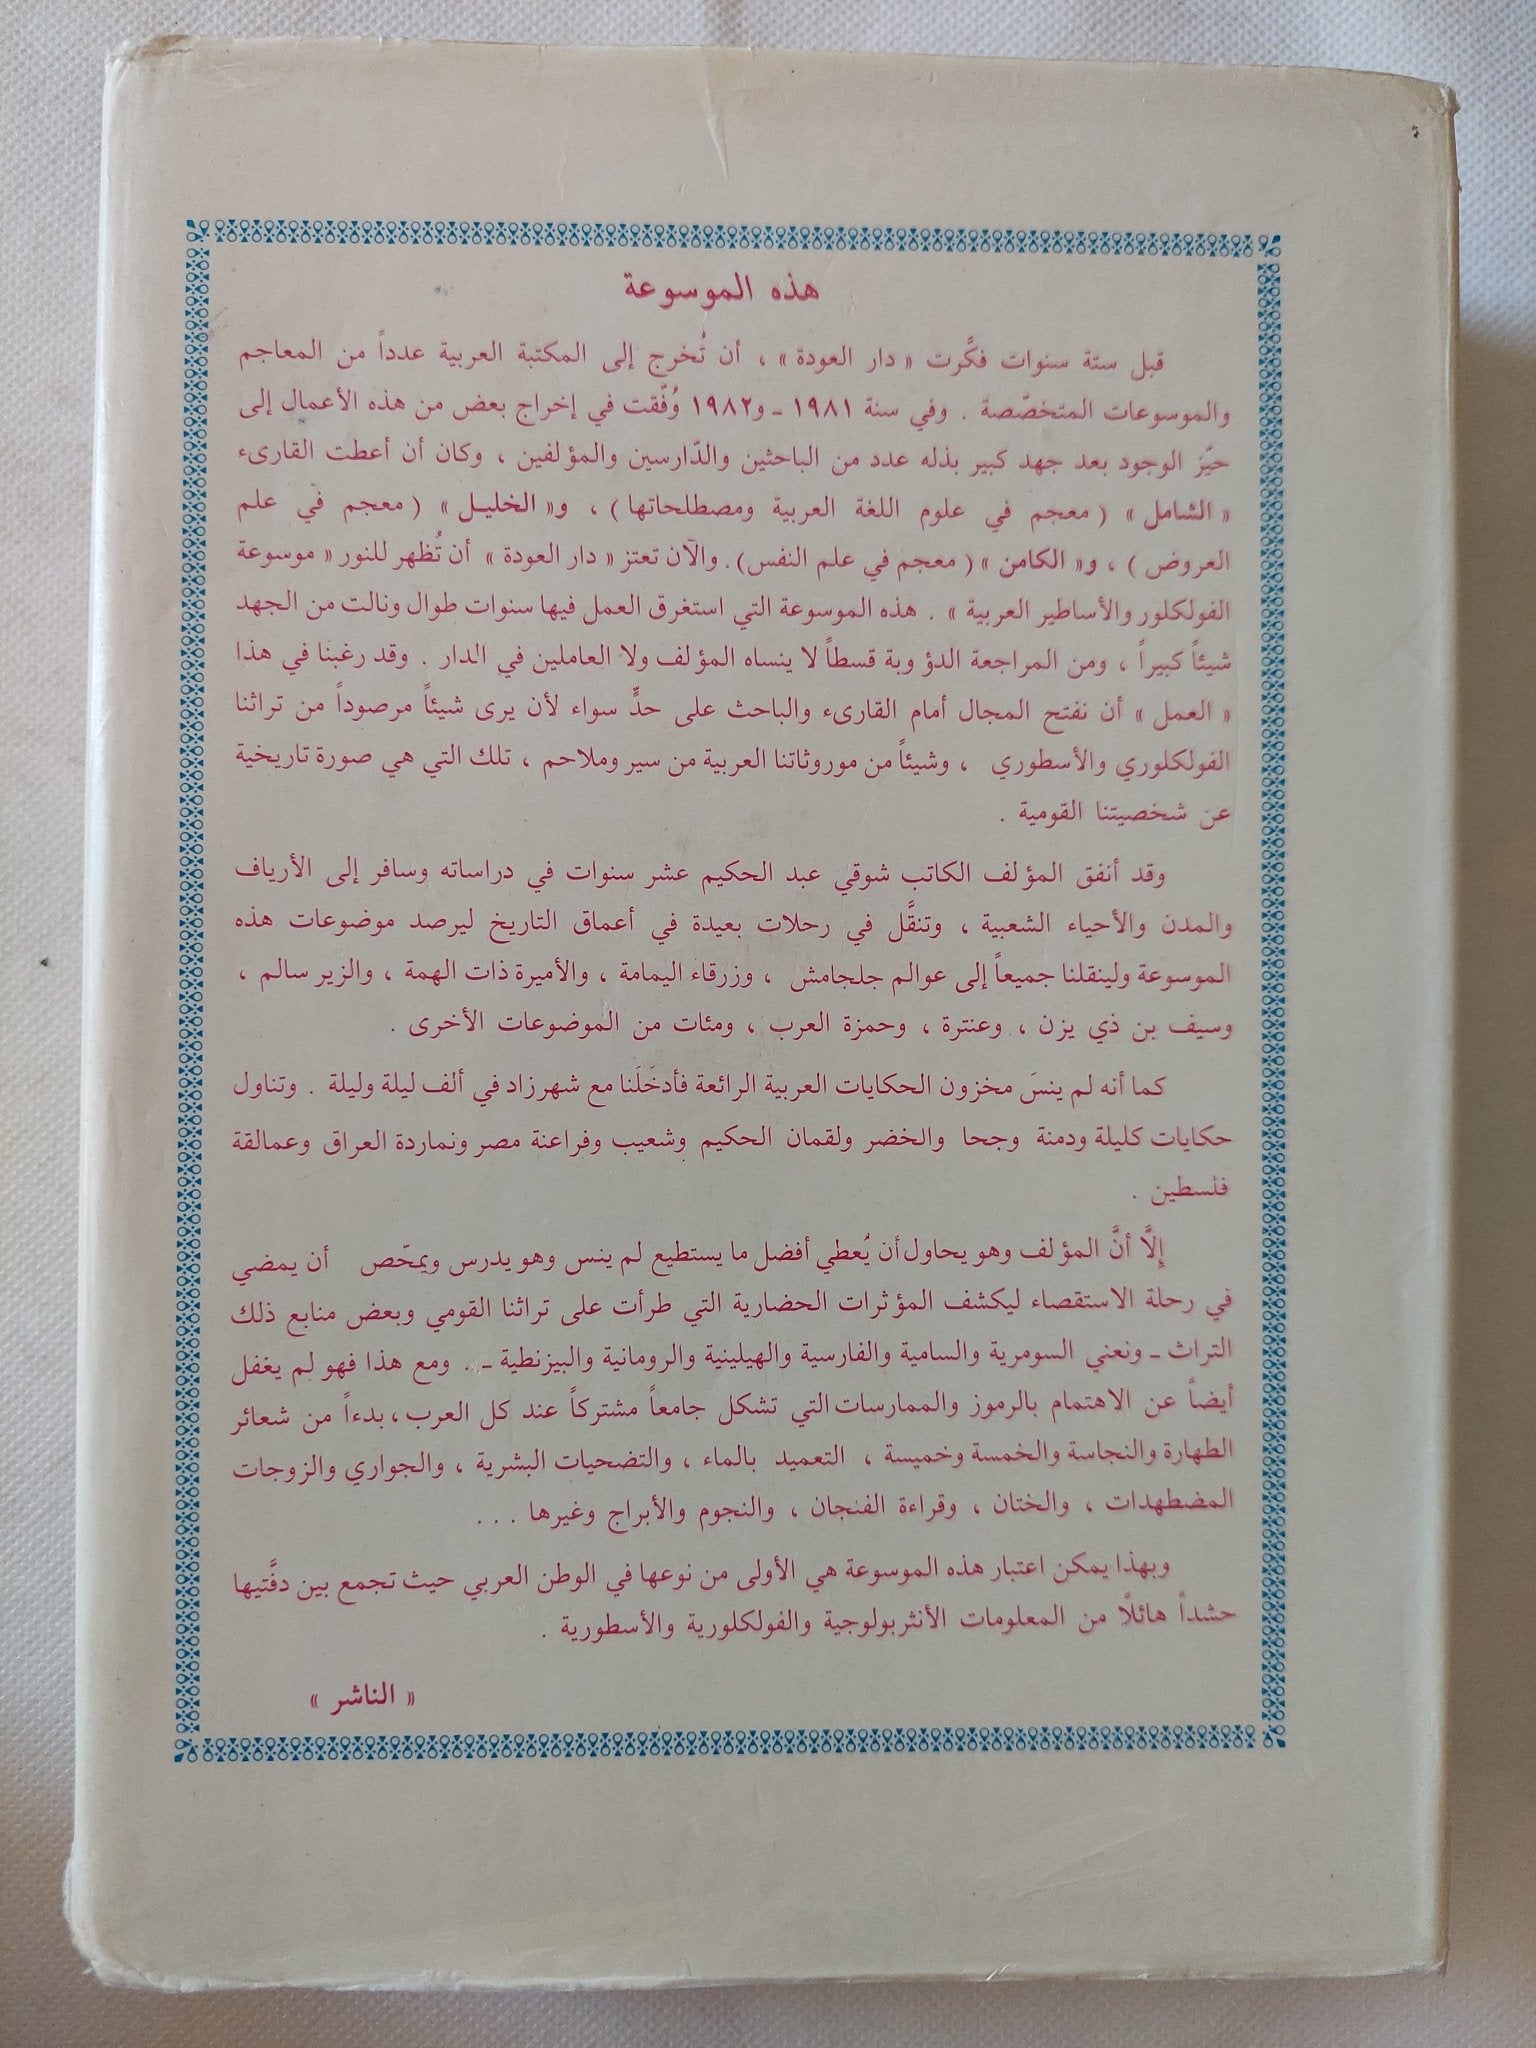 هذه الموسوعة
قبل ستة سنوات فكَّرت « دار العودة » ، أن تُخرج إلى المكتبة العربية عدداً من المعاجم
والموسوعات المتخصّصة . وفي سنة ١٩٨١ ـ و١٩٨٢ وُفّقت في إخراج بعض من هذه الأعمال إلى
حيّز الوجود بعد جهد كبير بذله عدد من الباحثين والدّارسين والمؤلفين ، وكان أن أعطت القارىء
« الشامل » ( معجم في علوم اللغة العربية ومصطلحاتها ) ، و« الخليل » ( معجم في علم
العروض ) ، و« الكامن » ( معجم في علم النفس) . والآن تعتز « دار العودة » أن تُظهر للنور « موسوعة
الفولكلور والأساطير العربية » . هذه الموسوعة التي استغرق العمل فيها سنوات طوال ونالت من الجهد
شيئاً كبيراً ، ومن المراجعة الدؤوبة قسطاً لا ينساه المؤلف ولا العاملين في الدار . وقد رغبنا في هذا
« العمل » أن نفتح المجال أمام القارىء والباحث على حدٍّ سواء لأن يرى شيئاً مرصوداً من تراثنا
الفولكلوري والأسطوري ، وشيئاً من موروثاتنا العربية من سير وملاحم ، تلك التي هي صورة تاريخية
عن شخصيتنا القومية .
وقد أنفق المؤلف الكاتب شوقي عبد الحكيم عشر سنوات في دراساته وسافر إلى الأرياف
والمدن والأحياء الشعبية ، وتنقَّل في رحلات بعيدة في أعماق التاريخ ليرصد موضوعات هذه
الموسوعة ولينقلنا جميعاً إلى عوالم جلجامش ، وزرقاء اليمامة ، والأميرة ذات الهمة ، والزير سالم ،
وسيف بن ذي يزن ، وعنترة ، وحمزة العرب ، ومئات من الموضوعات الأخرى .
كما أنه لم ينسَ مخزون الحكايات العربية الرائعة فأدخَلَنا مع شهرزاد في ألف ليلة وليلة . وتناول
حكايات كليلة ودمنة وجحا والخضر ولقمان الحكيم وشعيب وفراعنة مصر ونماردة العراق وعمالقة
فلسطين .
إلَّا أنَّ المؤلف وهو يحاول أن يُعطي أفضل ما يستطيع لم ينس وهو يدرس ويمحّص أن يمضي
في رحلة الاستقصاء ليكشف المؤثرات الحضارية التي طرأت على تراثنا القومي وبعض منابع ذلك
التراث ـ ونعني السومرية والسامية والفارسية والهيلينية والرومانية والبيزنطية ـ . ومع هذا فهو لم يغفل
أيضاً عن الاهتمام بالرموز والممارسات التي تشكل جامعاً مشتركاً عند كل العرب ، بدءاً من شعائر
الطهارة والنجاسة والخمسة وخميسة ، التعميد بالماء ، والتضحيات البشرية ، والجواري والزوجات
المضطهدات ، والختان ، وقراءة الفنجان ، والنجوم والأبراج وغيرها . . .
وبهذا يمكن اعتبار هذه الموسوعة هي الأولى من نوعها في الوطن العربي حيث تجمع بين دفَّتيها
حشداً هائلًا من المعلومات الأنثربولوجية والفولكلورية والأسطورية .
« الناشر »